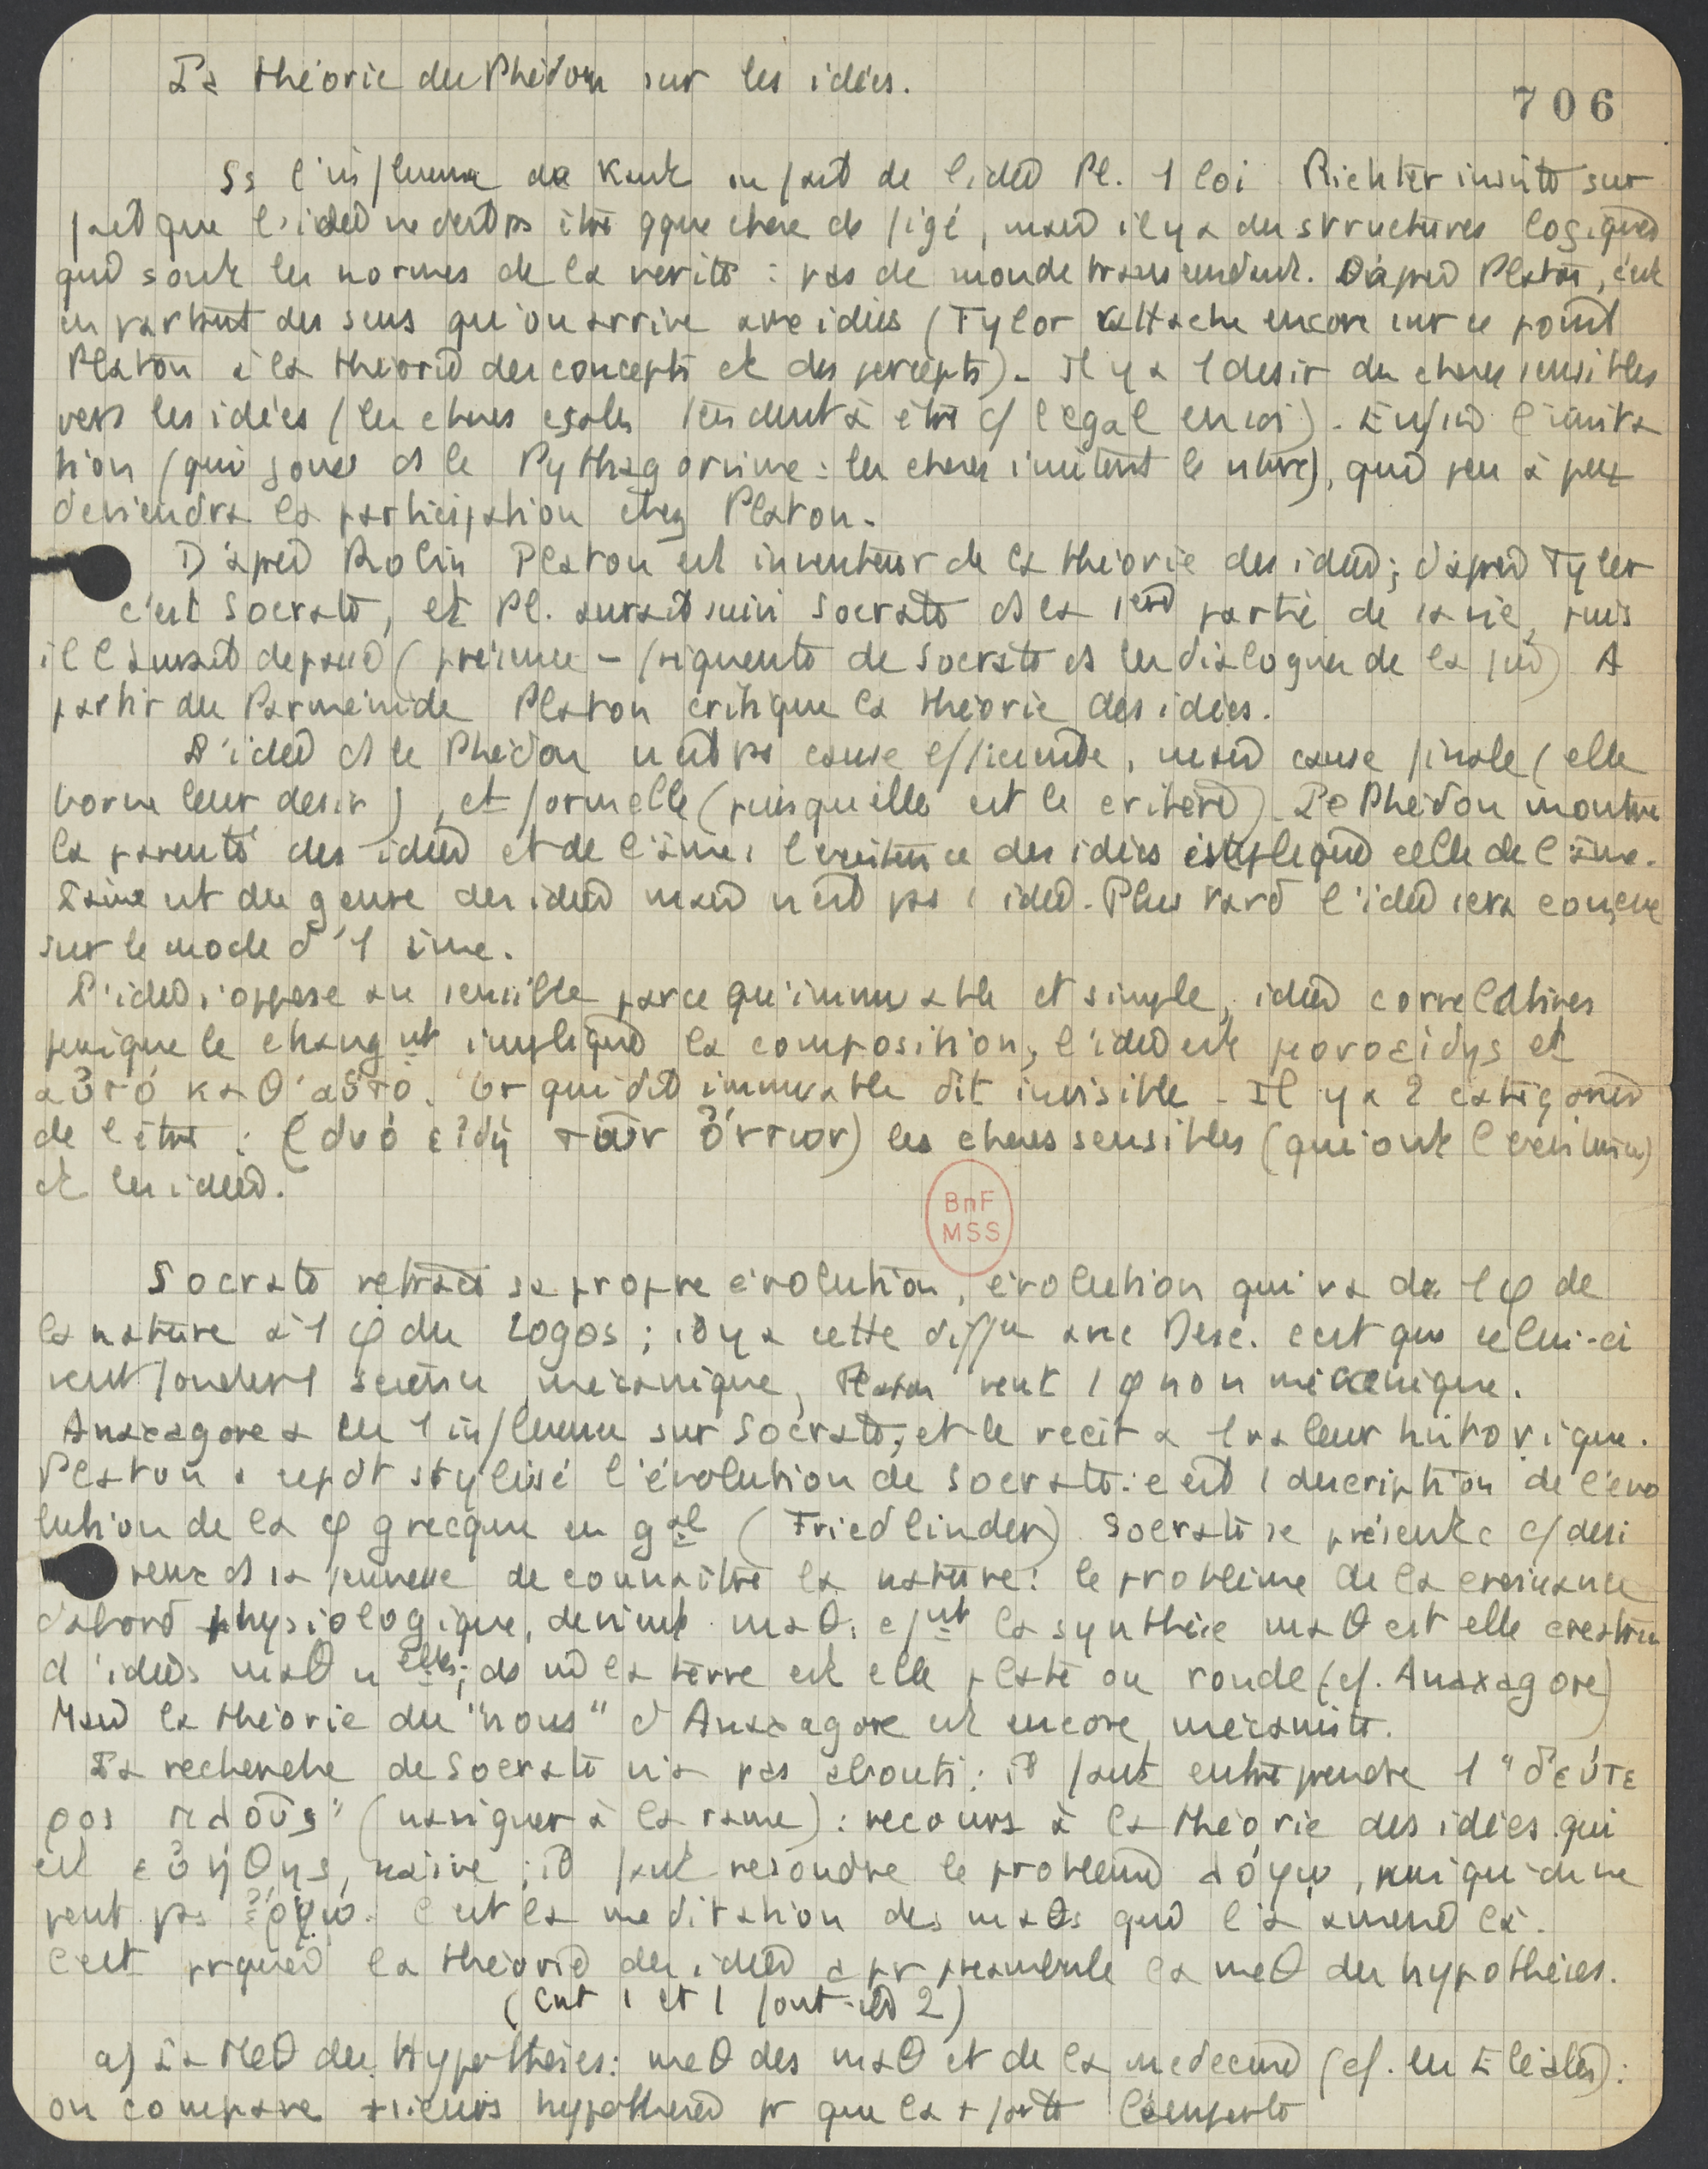 La théorie du Phédon sur les idées.
706
Ss l'influence de Kant on fait de l'idée Pl. 1 loi. Richter insiste sur
fait que l'idée ne doit ps être qque chose de figé, mais il y a des structures logiques
qui sont les normes de la vérité : pas de monde transcendant. D'après Platon, c'est
en partant des sens qu'on arrive aux idées (Tylor rattache encore sur ce point
Platon à la théorie des concepts et des percepts). Il y a 1 désir des choses sensibles
vers les idées (les choses égales tendent à être c/ l'égal en soi). Enfin l'imita
tion (qui joue ds le Pythagorisme : les choses imitent le nbre), qui peu à peu
deviendra la participation chez Platon.
D'après Robin Platon est inventeur de la théorie des idées; d'après Tyler
c'est Socrate, et Pl. aurait suivi Socrate ds la 1ère partie de sa vie, puis
il l'aurait dépassé ( Socrate ds les dialogues de la fin) A
partir du Parménide Platon critique la théorie des idées.
L'idée ds le Phédon n'est ps cause efficiente, mais cause finale (elle
borne leur désir), et formelle (puisqu'elle est le critère). Le Phédon montre
la parenté des idées et de l'âme, l'existence des idées implique celle de l'âme.
L'âme est du genre des idées mais n'est pas 1 idée. Plus tard l'idée sera conçue
sur le mode d'1 âme.
L'idée s'oppose au sensible parce qu'immuable et simple, idées corrélatives
puisque le changnt implique la composition, l'idée est μονοειδής et
αὐτό καθ'αὑτό. Or qui dit immuable dit invisible. Il y a 2 catégories
de l'être : (δυό εἴδη τῶν ὄντων) les choses sensibles (qui ont l'existence)
et les idées.
BnF
MSS
Socrate retrace sa propre évolution, évolution qui va de 1 φ de
la nature à 1 φ du Logos; il y a cette diffce avec Desc. c'est que celui-ci
veut fonder 1 science mécanique, Platon veut 1 φ non mécanique.
Anaxagore a eu 1 influence sur Socrate, et le récit a 1 valeur historique.
Platon a stylisé l'évolution de Socrate : c'est 1 description de l'évo
lution de la φ grecque en gal (Friedlinder) Socrate se présente c/ dési
reux ds sa jeunesse de connaître la nature : le problème de la croissance
d'abord physiologique, devient maθ. c/nt la synthèse maθ est elle créatrice
d'idées maθ nelles; de m la terre est elle plate ou ronde (cf. Anaxagore)
Mais la théorie du "nous" d'Anaxagore est encore mécaniste.
La recherche de Socrate n'a pas abouti : il faut entreprendre 1 "δεύτε
ρος πλοῦς" (naviguer à la rame) : recours à la théorie des idées qui
est εὐήθης, naïve; il faut résoudre le problème λόγῳ, puisqu'on ne
peut pas ἔργῳ. C'est la méditation des maθs qui l'a amené là.
C'est prquoi la théorie des idées a pr préambule la méθ des hypothèses.
(Cmt 1 et 1 font-ils 2)
a) La Méθ des Hypothèses : méθ des maθ et de la médecine (cf. les Eléates) :
on compare +sieurs hypothèses pr que la + forte l'emporte